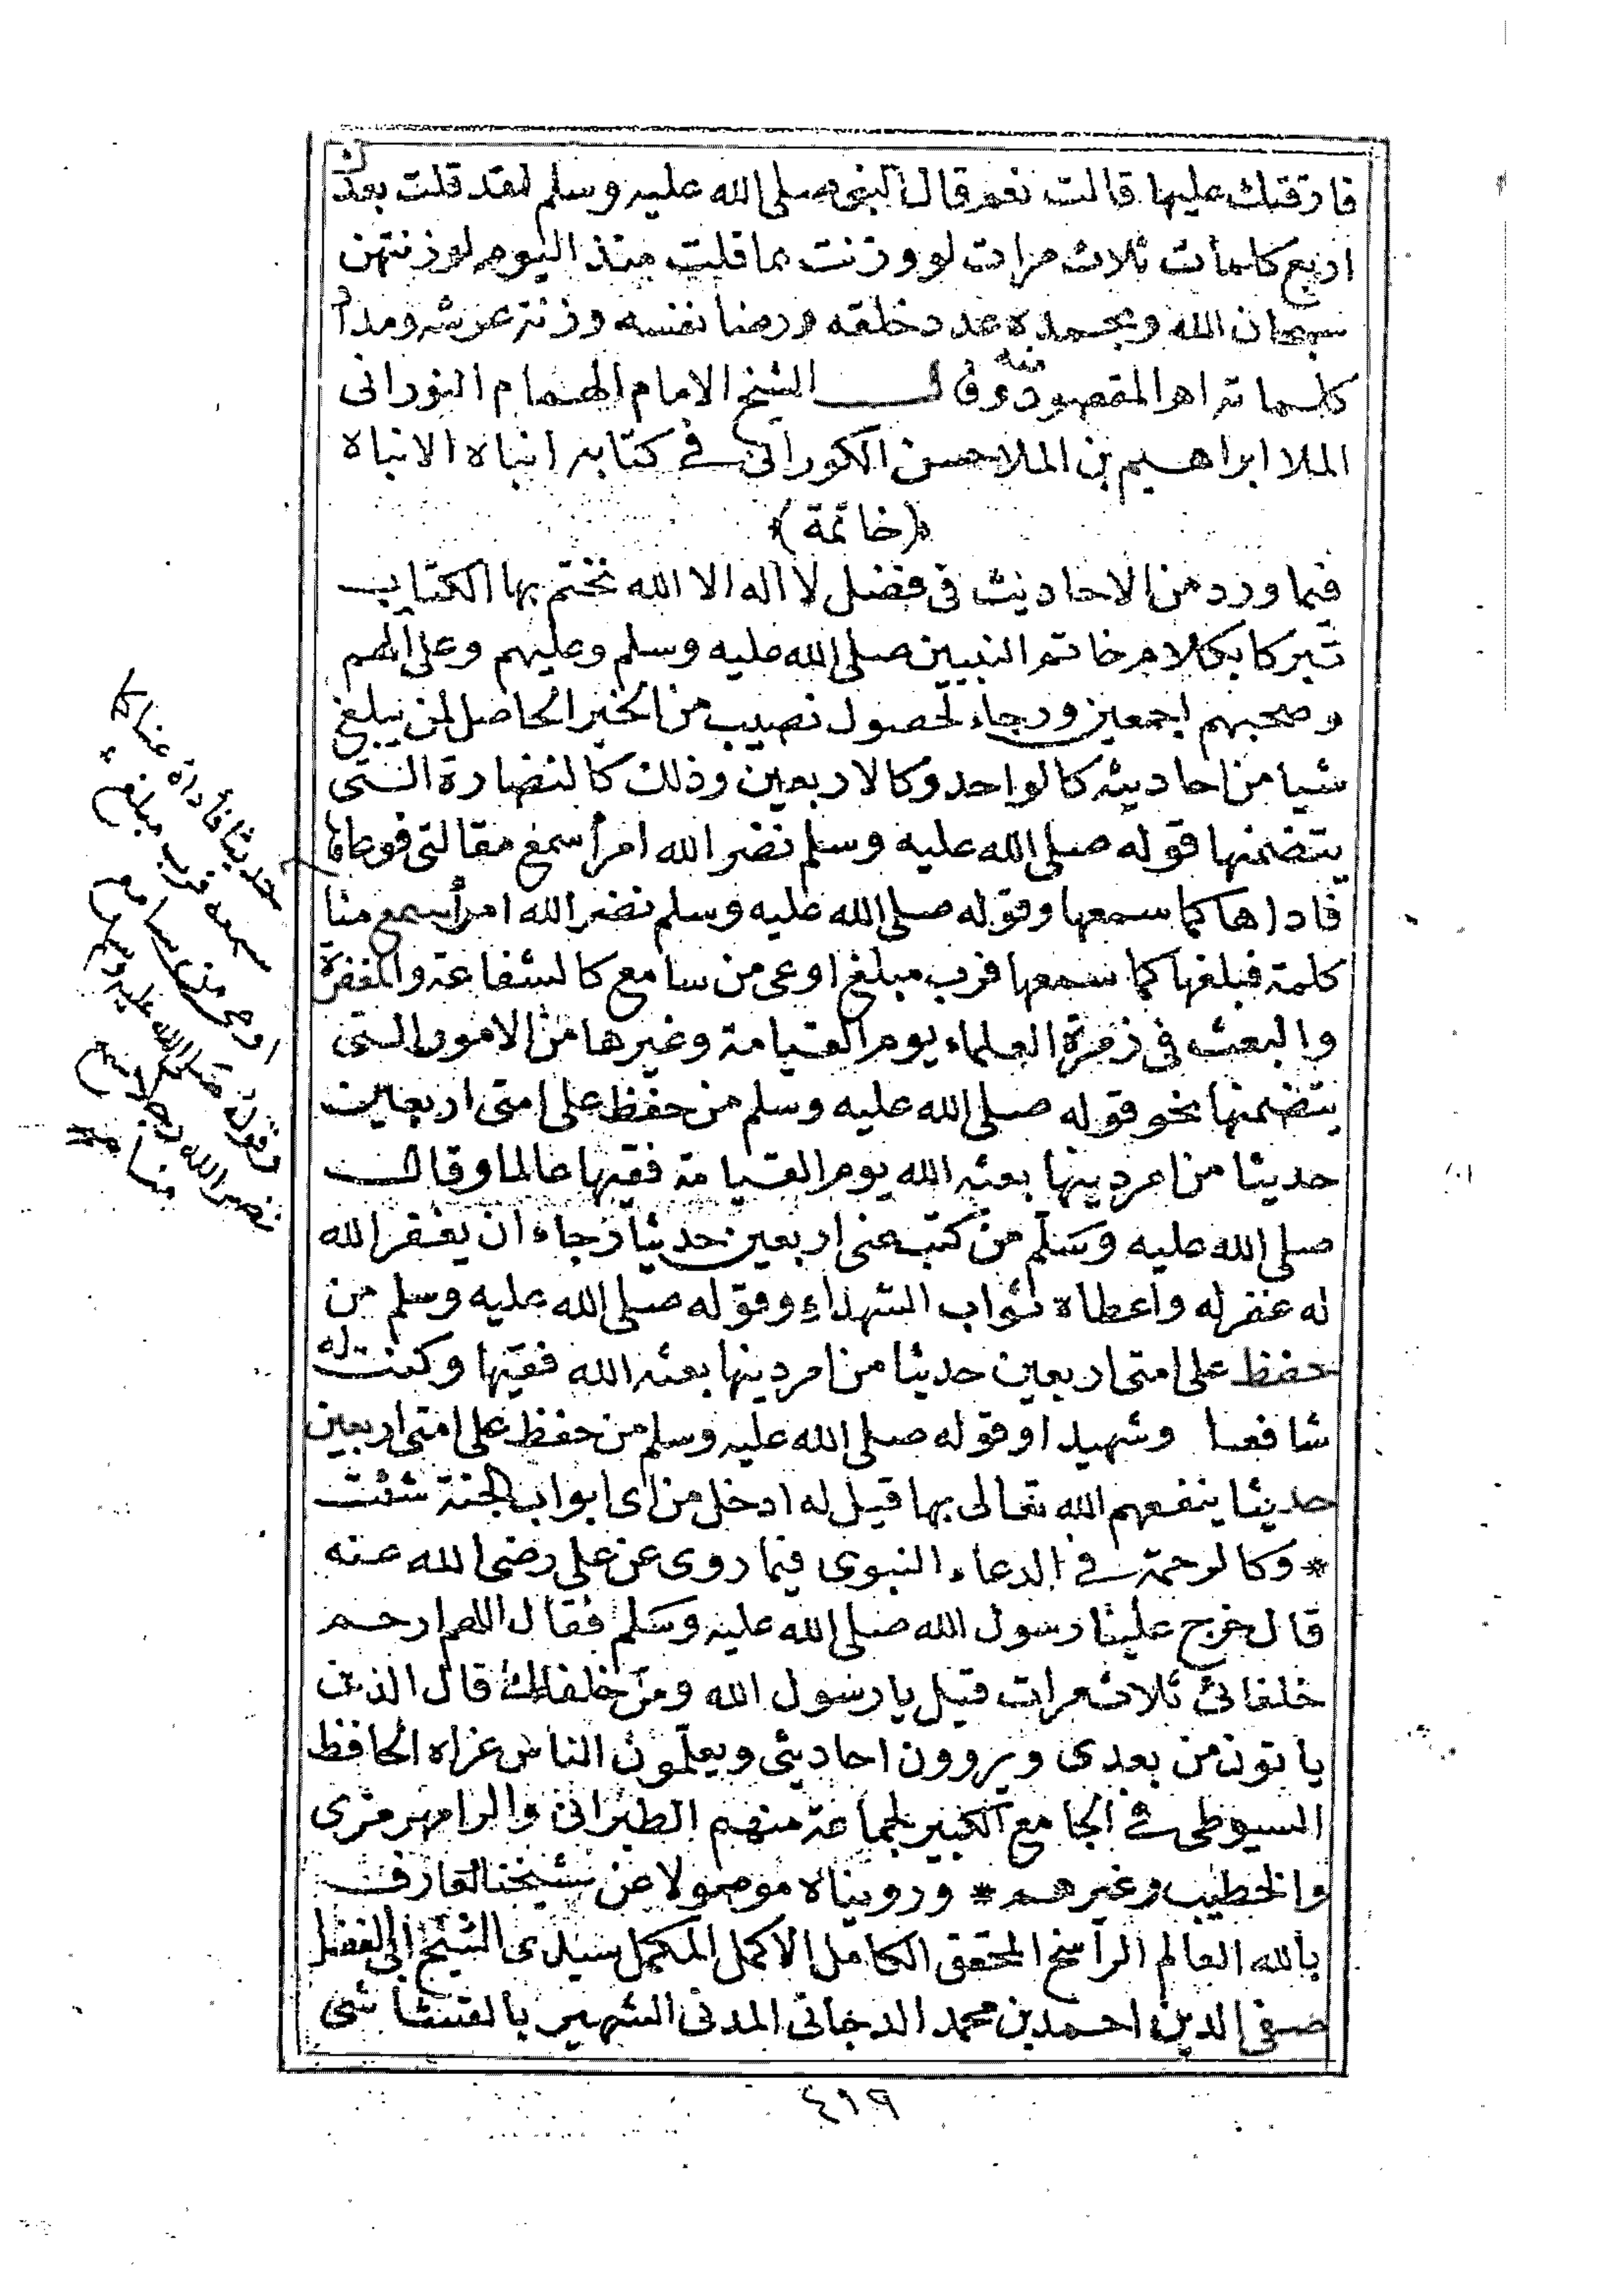 فارقتك عليها قالت نعم قال النبي صلى الله عليه وسلم لقد قلت بعدك
اربع كلمات ثلاث مرات لو وزنت بما قلت منذ اليوم لوزنتهن
سبحان الله وبحمده عدد خلقه ورضا نفسه وزنة عرشه ومداد
كلماته اهـ المقصود منه وقال الشيخ الامام الهمام النورانى
الملا ابراهيم بن الملا حسن الكورانى فى كتابه انباه الانباه
(خاتمة)
فيما ورد من الاحاديث فى فضل لا اله الا الله نختم بها الكتاب
تبركا بكلام خاتم النبيين صلى الله عليه وسلم وعليهم وعلى الهم
وصحبهم اجمعين ورجاء لحصول نصيب من الخير الحاصل لمن يبلغ
شيا من احاديثه كالواحد وكالاربعين وذلك كالنضارة التى
يتضمنها قوله صلى الله عليه وسلم نضر الله امرأ سمع مقالتى فوعاها
فاداها كما سمعها وقوله صلى الله عليه وسلم نضر الله امرأ سمع منا
كلمة فبلغها كما سمعها فرب مبلغ اوعى من سامع كالشفاعة والمغفرة
والبعث فى زمرة العلماء يوم القيامة وغيرها من الامور التى
يتضمنها نحو قوله صلى الله عليه وسلم من حفظ على امتى اربعين
حديثا من امر دينها بعثه الله يوم القيامة فقيها عالما وقال
صلى الله عليه وسلم من كتب عنى اربعين حديثا رجاء ان يغفر الله
له غفر له واعطاه ثواب الشهداء وقوله صلى الله عليه وسلم من
حفظ على امتى اربعين حديثا من امر دينها بعثه الله فقيها وكنت له
شافعا وشهيدا وقوله صلى الله عليه وسلم من حفظ على امتى اربعين
حديثا ينفعهم الله تعالى بها قيل له ادخل من اى ابواب الجنة شئت
* وكالرحمة فى الدعاء النبوى فيما روى عن على رضى الله عنه
قال خرج علينا رسول الله صلى الله عليه وسلم فقال اللهم ارحم
خلفائى ثلاث مرات قيل يا رسول الله ومن خلفاؤك قال الذين
ياتون من بعدى ويروون احاديثى ويعلمون الناس عزاه الحافظ
السيوطى فى الجامع الكبير لجماعة منهم الطبرانى والرامهرمزى
والخطيب وغيرهم * ورويناه موصولا عن شيخنا العارف
بالله العالم الراسخ المحقق الكامل الاكمل المكمل سيدى الشيخ ابى الفضل
صفى الدين احمد بن محمد الدجانى المدنى الشهير بالقشاشى
٤١٩
حديثا فأداه عنا كما
سمعه فرب مبلغ
اوعى من سامع
وقوله صلى الله عليه وسلم
نضر الله رجلا سمع
منا